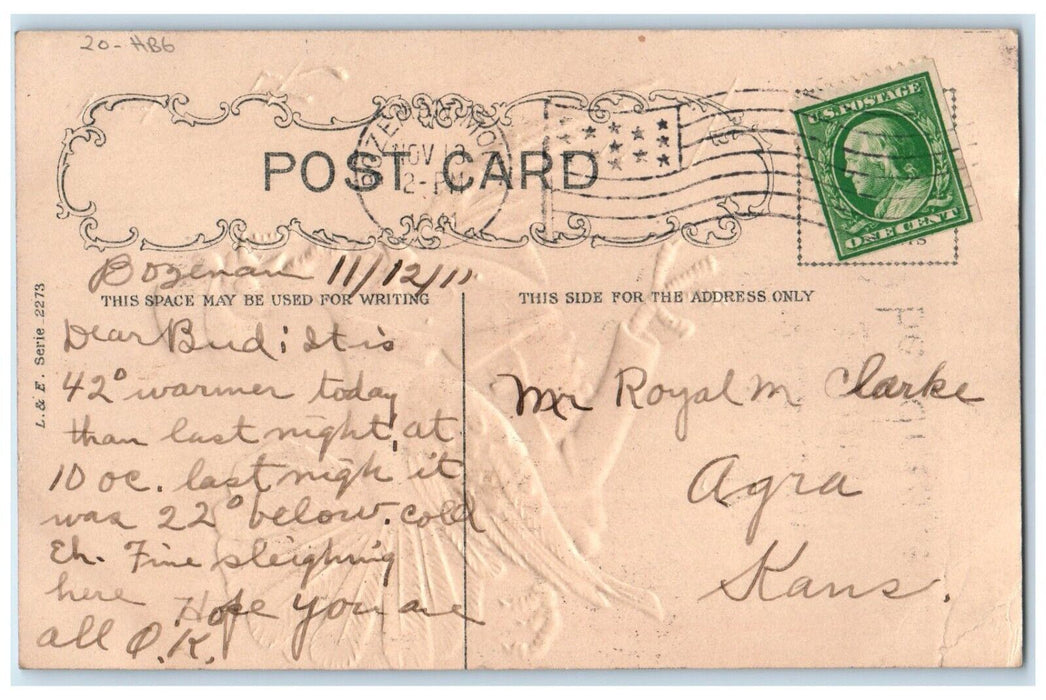 20-HB6
U.S. POSTAGE
ONE CENT
BOZEMAN, MONT
NOV 12
2-PM
1911
POST CARD
L. & E. Serie 2273
Bozeman 11/12/11
THIS SPACE MAY BE USED FOR WRITING
Dear Bud: It is
42° warmer today
than last night, at
10 oc. last nigh it
was 22° below. cold
Eh. Fine sleighing
here Hope you are
all O.K.
THIS SIDE FOR THE ADDRESS ONLY
Mr Royal M Clarke
Agra
Kans.